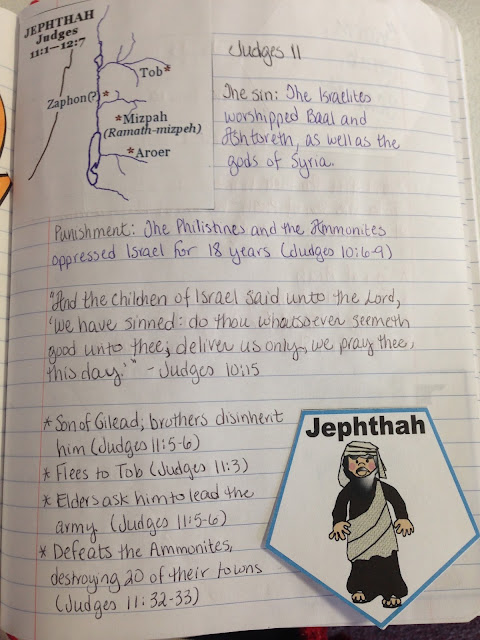 JEPHTHAH
Judges
11:1—12:7
Tob*
Zaphon(?)*
*Mizpah
(Ramath-mizpeh)
*Aroer
Judges 11
The sin: The Israelites
worshipped Baal and
Ashtoreth, as well as the
gods of Syria.
Punishment: The Philistines and the Ammonites
oppressed Israel for 18 years (Judges 10:6-9)
"And the children of Israel said unto the Lord,
'we have sinned: do thou whatsoever seemeth
good unto thee; deliver us only, we pray thee,
this day.'" - Judges 10:15
* Son of Gilead; brothers disinherit
him (Judges 11:5-6)
* Flees to Tob (Judges 11:3)
* Elders ask him to lead the
army (Judges 11:5-6)
* Defeats the Ammonites,
destroying 20 of their towns
(Judges 11:32-33)
Jephthah